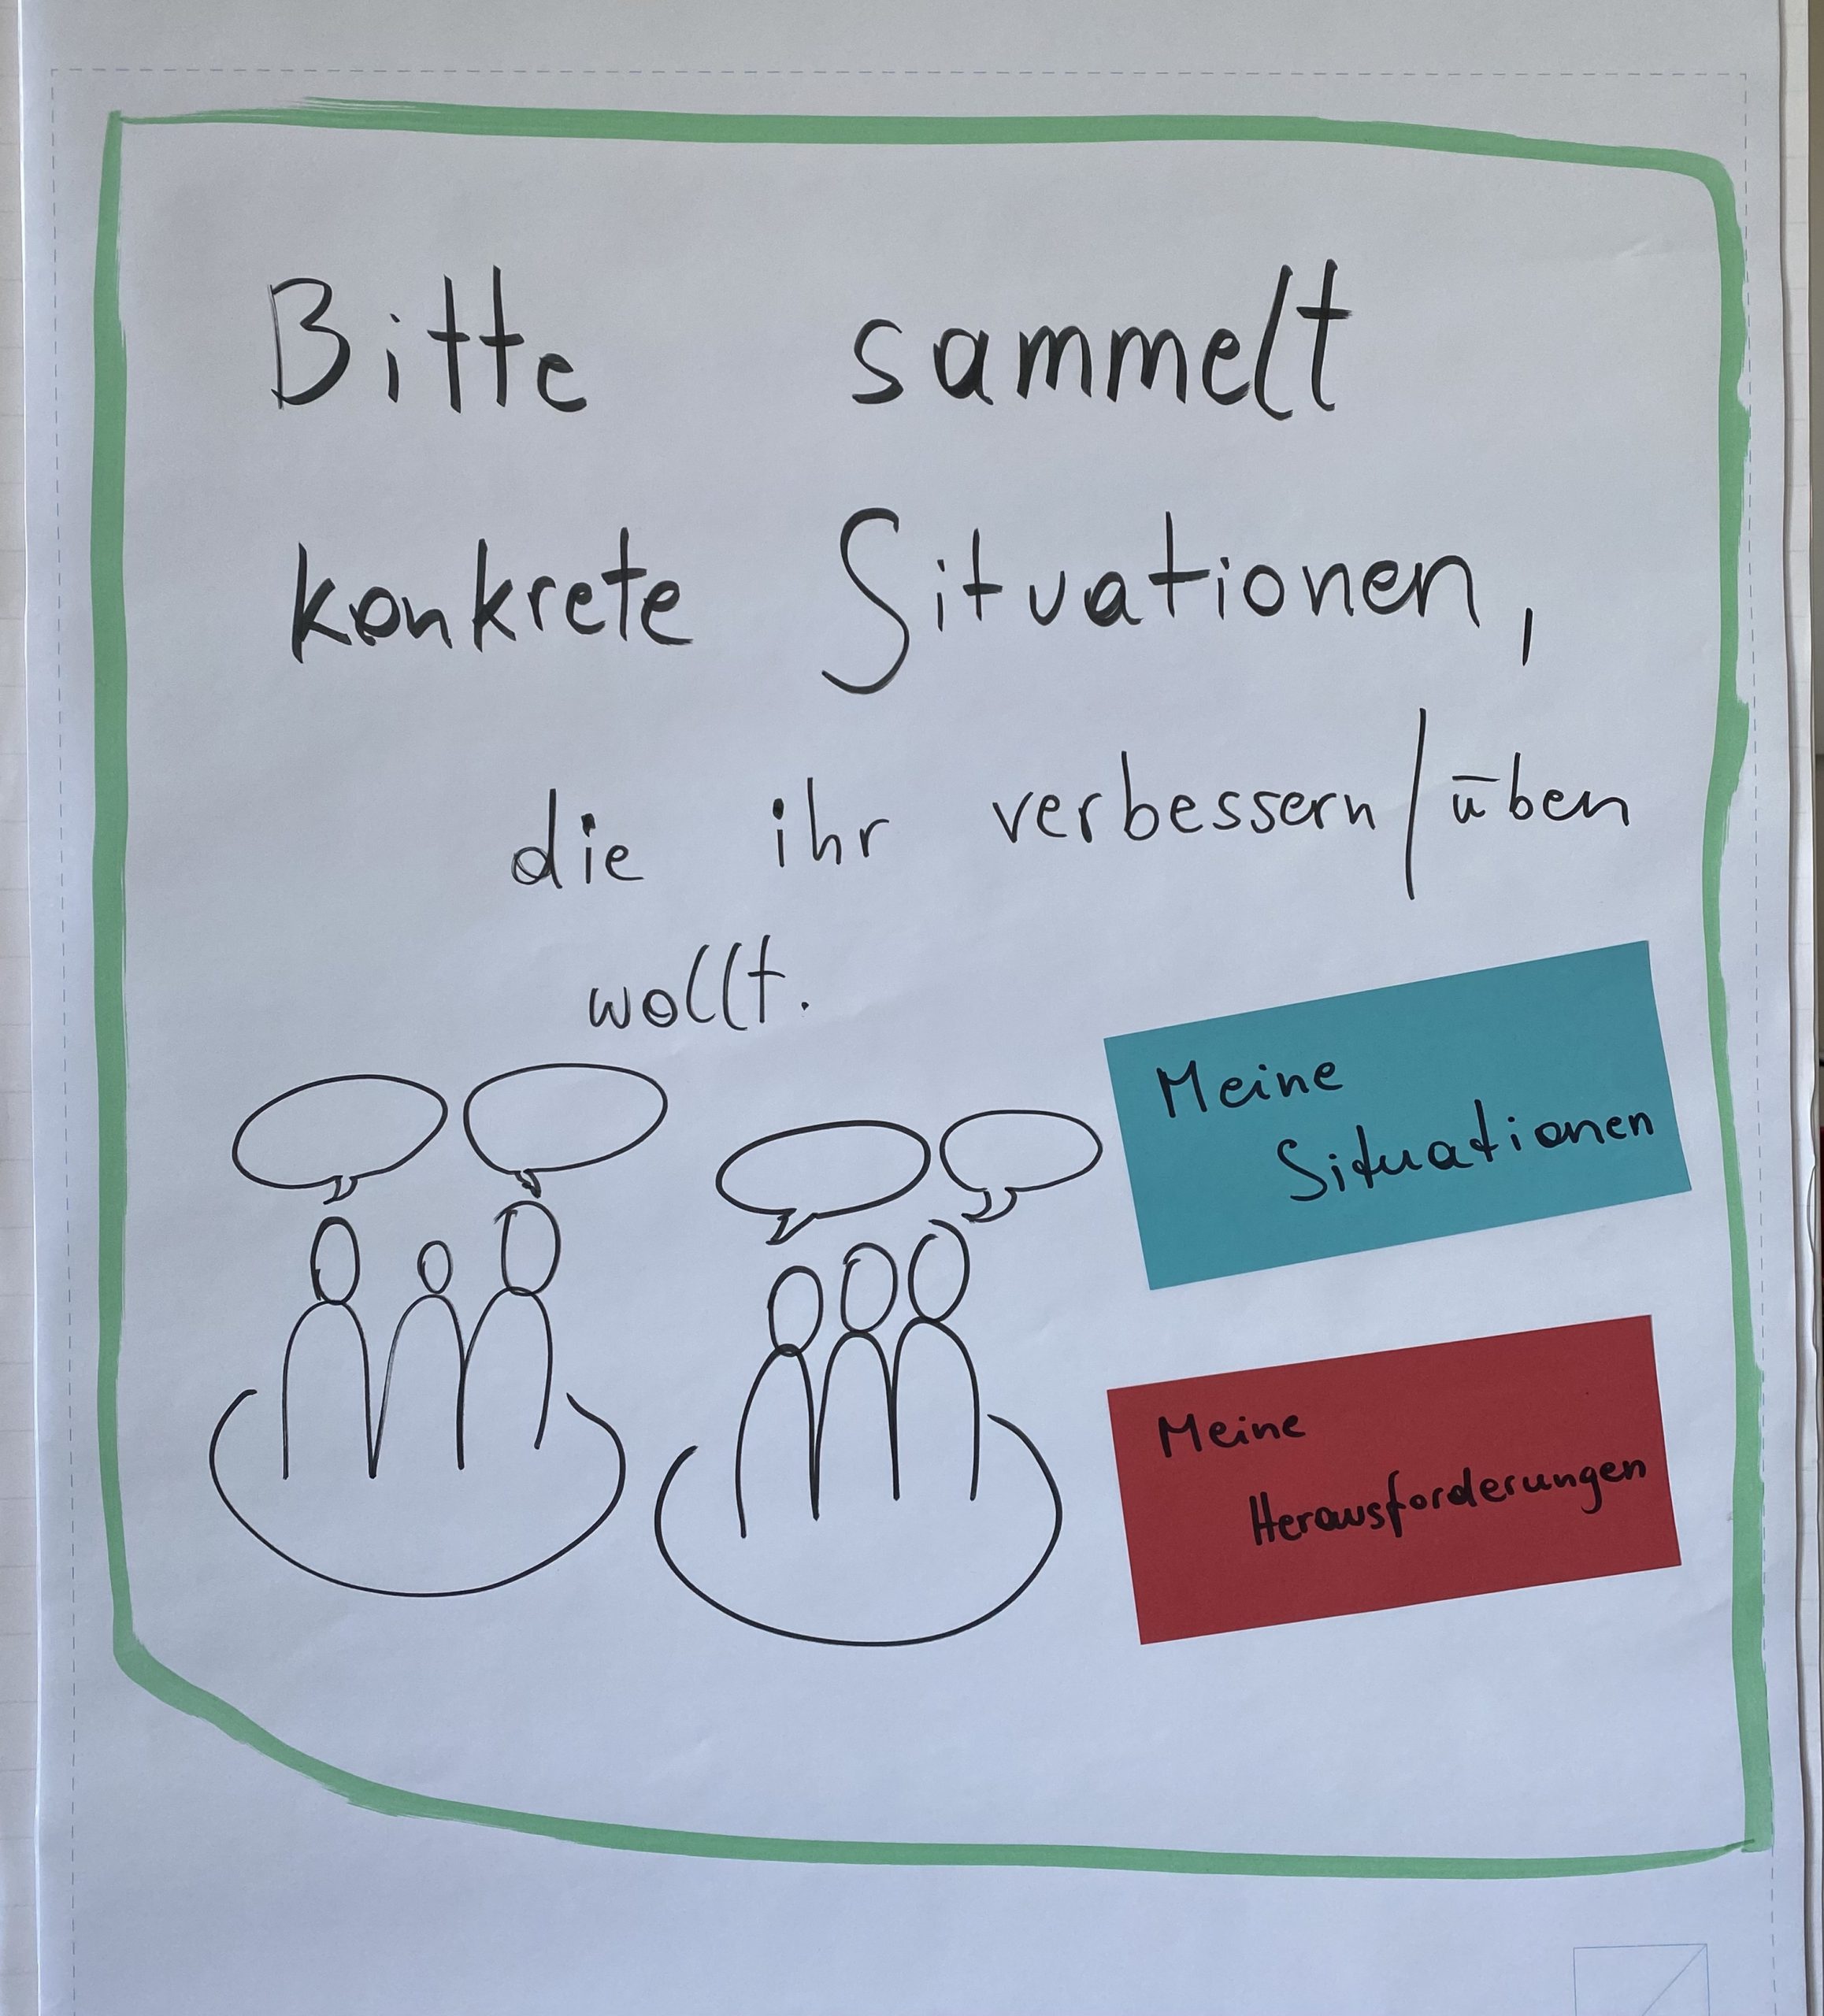 Bitte sammelt
konkrete Situationen,
die ihr verbessern/üben
wollt.
Meine
Situationen
Meine
Herausforderungen